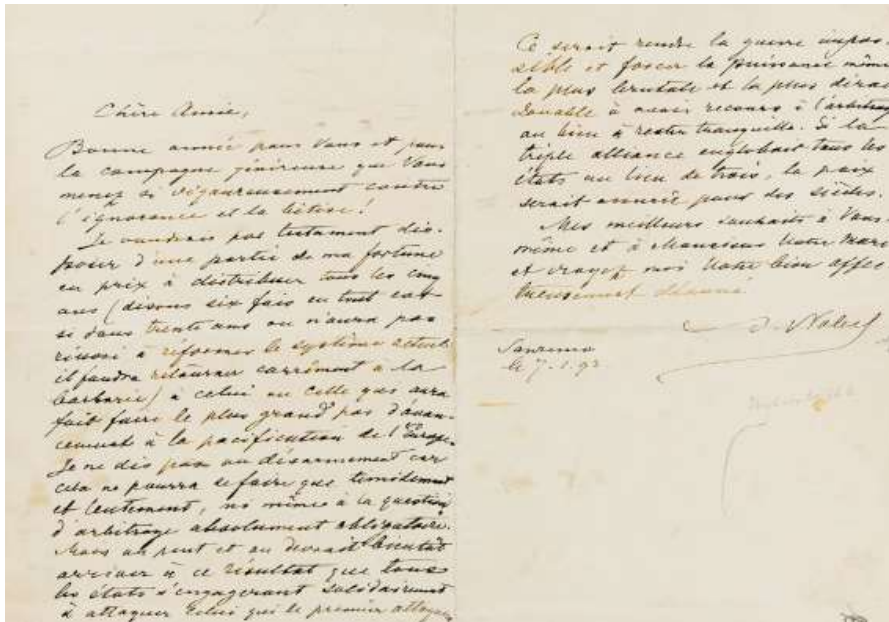 Chère Amie,
Bonne année pour Vous et pour
la campagne généreuse que Vous
menez si vigoureusement contre
l'ignorance et la bêtise!
Je voudrais par testament dis-
poser d'une partie de ma fortune
en prix à distribuer tous les cinq
ans (disons six fois en tout car
si dans trente ans on n'aura pas
réussi à réformer le système actuel
il faudra retourner carrément à la
barbarie) à celui ou celle qui aura
fait faire le plus grand pas d'avan-
cement à la pacification de l'Europe.
Je ne dis pas au désarmement car
cela ne pourra se faire que timidement
et lentement, ni même à la question
d'arbitrage absolument obligatoire.
Mais on peut et on devrait bientôt
arriver à ce résultat que tous
les états s'engageront solidairement
à attaquer celui qui le premier attaque
Ce serait rendre la guerre impos-
sible et forcer la puissance même
la plus brutale et la plus dérai-
sonnable à avoir recours à l'arbitrage
ou bien à rester tranquille. Si la
triple alliance englobait tous les
états au lieu de trois, la paix
serait assurée pour des siècles.
Mes meilleurs souhaits à Vous
même et à Monsieur Votre mari
et croyez moi Votre bien affec
tueusement dévoué
A. Nobel
Sanremo
le 7.1.93